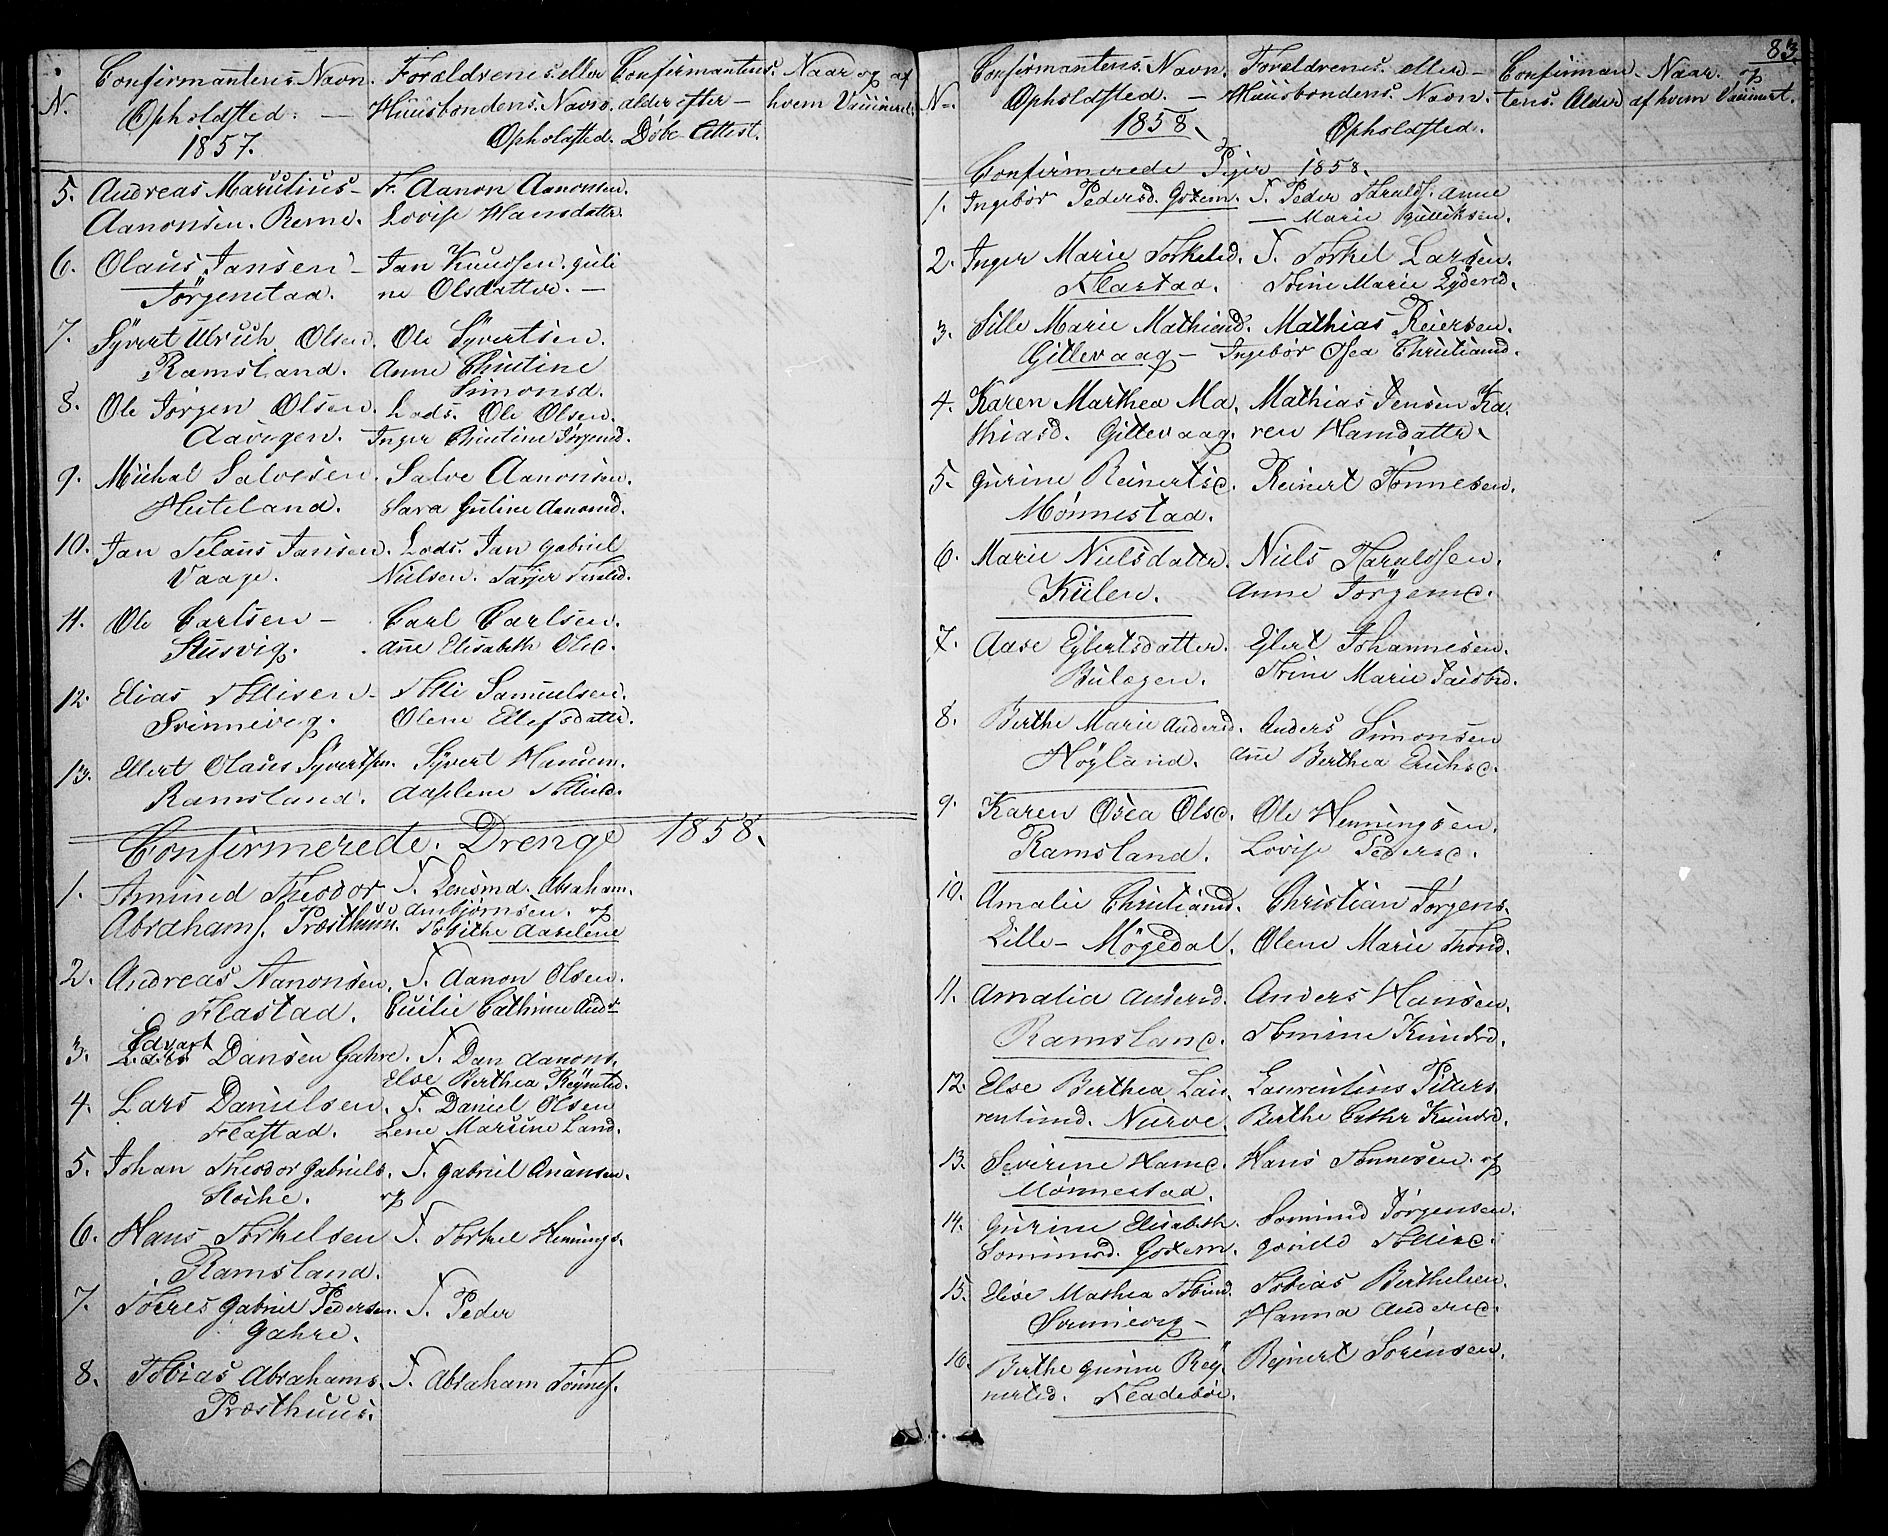 N.
Confirmantens Navn.
Opholdsted. —
1857.
Forældrenes eller
Huusbondens Navn.
Opholdsted.
Confirmantens
alder efter —
Döbe Attest.
Naar og af
hvem Vaccineret
5. Andreas
Aanonsen. Reme.
F. Aanon Aanonsen.
Lovise Hansdattr.
6. Olaus Jansen —
Jörgenstad.
Jan Knudsen. Guli
ne Olsdatter. —
7. Syvert Ulrich Olsen.
Ramsland.
Ole Syvertsen.
Anne Christine
Simonsd.
8. Ole Jörgen Olsen.
Aavigen.
Lods. Ole Olsen.
Inger Christine Jörgensd.
9. Michal Salvesen.
Huseland.
Salve Aanonsen.
Sara Guline Aanonsd.
10. Jan Jansen.
Vaage.
Lods. Jan Gabriel
Nielsen. Tarjer
11. Ole Carlsen —
Stusvig.
Carl Carlsen.
Ane Elisabeth Olsd.
12. Elias Tollisen —
Svinnevig.
Tolli Samuelsen.
Olene Ellefsdattr.
13. Ellert Olaus Syvertsen.
Ramsland.
Syvert Hansen.
Aaslene Tollisd.
Confirmerede. Drenge 1858.
1. Amund Theodor
Abrahams. Præsthuus.
F. Lensmd. Abraham
Ambjörnsen. og
Tobithe Aaselene
2. Andreas Aanonsen.
Flastad.
F. Aanon Olsen.
Cicilie Cathrine And
3. Edvart
Dansen Gahre.
F. Dan Aanons.
Else Berthea
4. Lars Danielsen.
Flastad.
F. Daniel Olsen
Lene Martine Land.
5. Johan Theodor Gabriels.
F. Gabriel Anansen.
og
6. Hans Torkelsen
Ramsland.
F. Torkel Hennings.
7. Torres Gabriel Pedersen.
Gahre.
F. Peder
8. Tobias Abrahams.
Præsthuus.
F. Abraham Tönnes.
83.
N.
Confirmantens Navn.
Opholdsted. —
1858.
Forældrenes eller —
Huusbondens Navn.
Opholdsted.
Confirman-
tens Alder
Naar og
af hvem Vaccinert.
Confirmerede Piger 1858.
1. Ingebor Pedersd. Gotem.
F. Peder Taralds. Anne
— Marie Gulliksen.
2. Inger Marie Torkelsd.
Flastad.
F. Torkel Larsen.
Trine Marie
3. Sille Marie Mathiasd.
Gittevaag —
Mathias Reiersen.
Ingebor Osea Christiansd.
4. Karen Marthea Ma
thiasd. Gittevaag.
Mathias Jensen Ka
ren Hansdattr.
5. Gurine Reinertsd.
Mönnestad.
Reinert Tönnesen.
6. Marie Nielsdattr.
Külen.
Niels Haraldsen.
Anne Jörgensd.
7. Aase Eglertsdatter.
Bulægen.
Eglert Johannesen.
Trine Marie Jacobsd.
8. Berthe Marie Andersd.
Höyland.
Anders Simonsen
Ane Berthea Erichsd.
9. Karen Osea Olsd.
Ramsland.
Ole Henningsen.
Lovise Pedersd.
10. Amalie Christiansd.
Lille — Mögedal.
Christian Jörgens.
Olene Marie Trond.
11. Amalia Andersd.
Ramsland.
Anders Hansen.
Tomine Knudsd.
12. Else Berthea Lau
rentiusd. Narve.
Laurentius Pitters
Berthe Cathr Knudsd.
13. Severine Hansd.
Mönnestad.
Hans Tönnesen. og
14. Gurine Elisabeth
Gotem.
Jörgensen.
Gunild Tollisd.
15. Elise Mathea Tobiasd.
Svinnevig —
Tobias Berthelsen.
Hanna Andersd.
16. Berthe Gurine Rey
nertsd. Kladeböe.
Rejnert Sörensen.